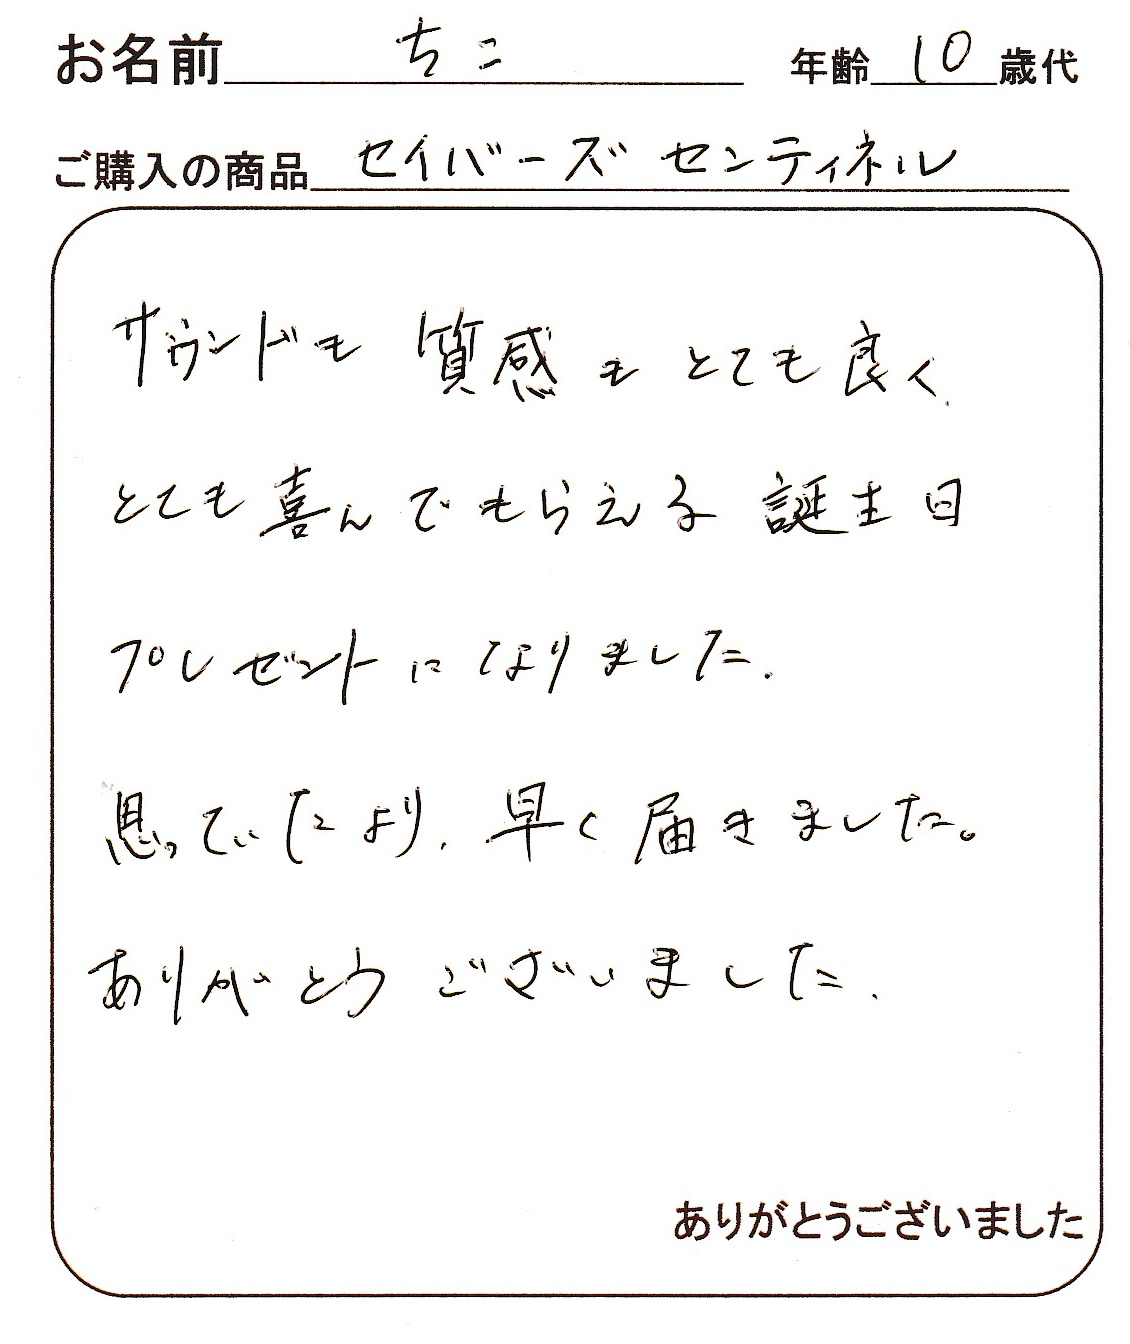 お名前 ちこ 年齢 10 歳代
ご購入の商品 セイバーズ センティネル
サウンドも 質感も とても良く、
とても喜んでもらえる 誕生日
プレゼントになりました.
思っていたより, 早く届きました。
ありがとうございました.
ありがとうございました